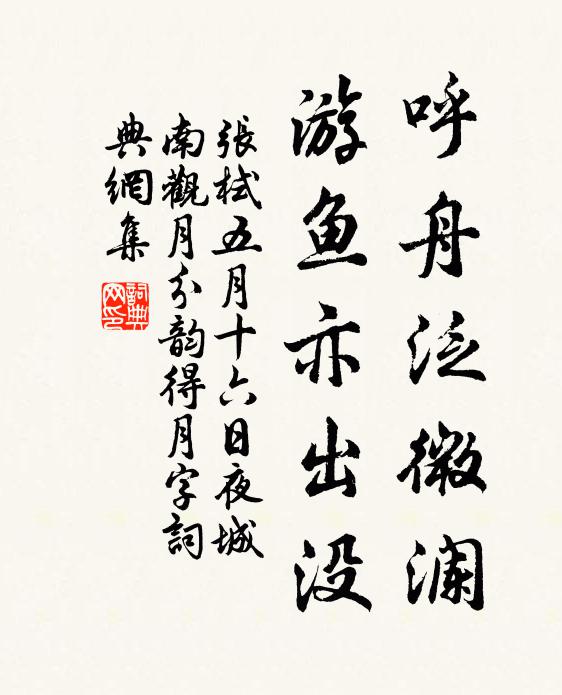 呼舟泛微澜
游鱼亦出没
張栻五月十六日夜城
南觀月分韵得月字詞
典網集
詞典网印